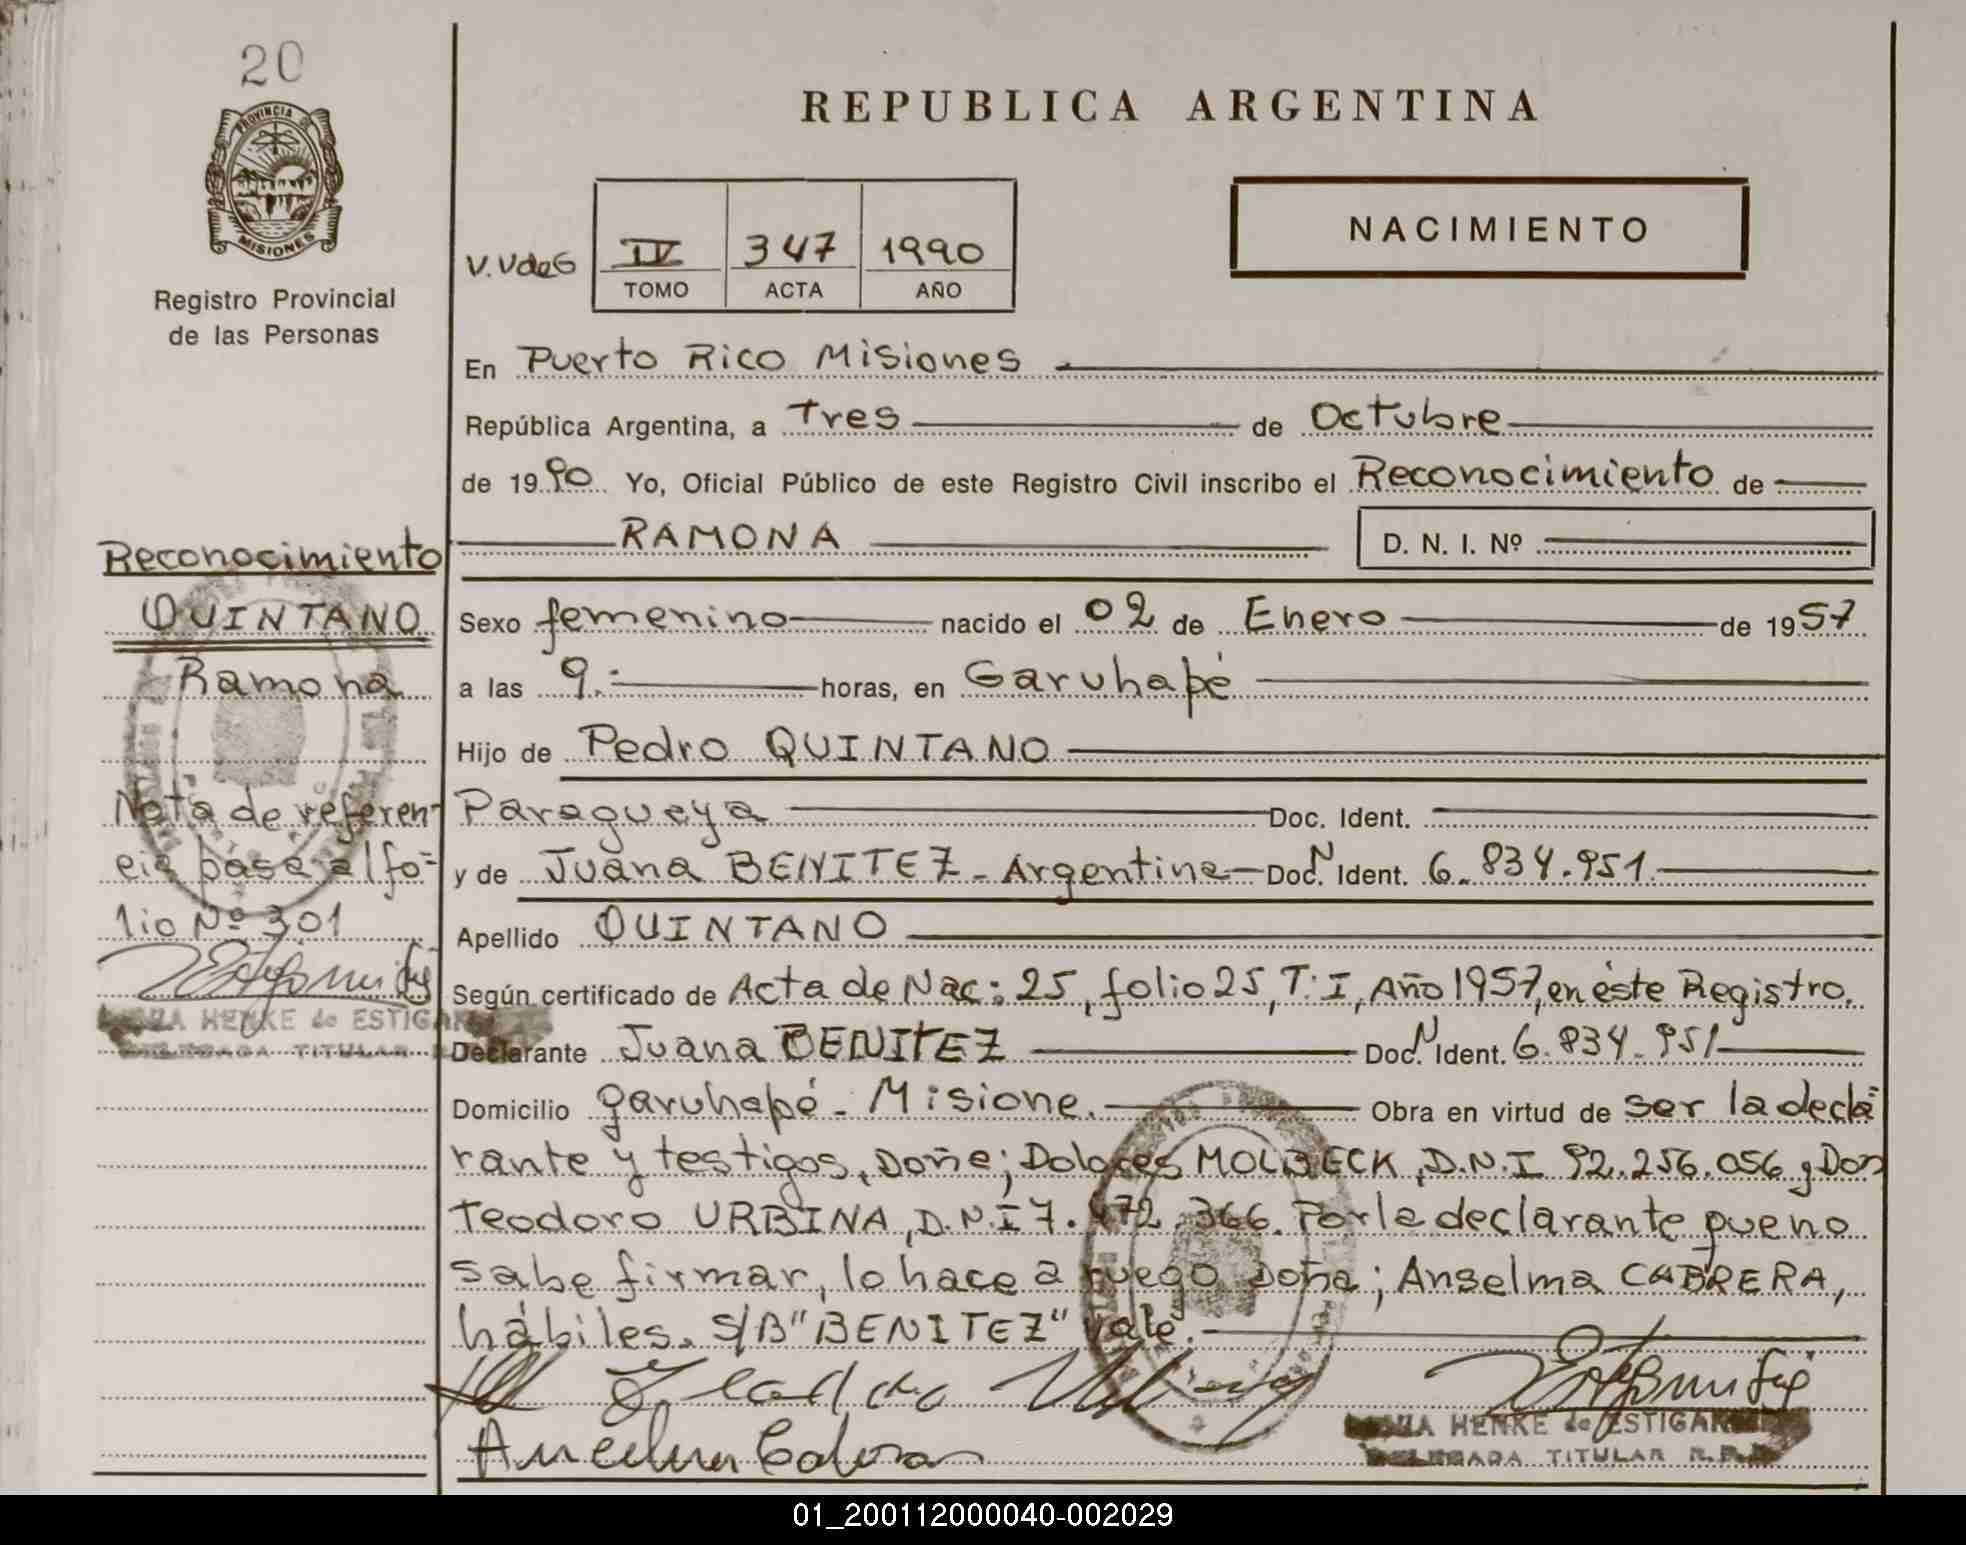 20
PROVINCIA DE
MISIONES
Registro Provincial
de las Personas
REPUBLICA ARGENTINA
NACIMIENTO
V.VdeG
IV 347 1990
TOMO ACTA AÑO
En Puerto Rico Misiones
República Argentina, a Tres de Octubre
de 1990 Yo, Oficial Público de este Registro Civil inscribo el Reconocimiento de
RAMONA D. N. I. Nº
Sexo femenino nacido el 02 de Enero de 1957
a las 9.- horas, en Garuhapé
Hijo de Pedro QUINTANO
Paragueya Doc. Ident.
y de Juana BENITEZ - Argentina Doc. N Ident. 6.834.951.
Apellido QUINTANO
Según certificado de Acta de Nac: 25, folio 25, T: I, Año 1957, en éste Registro.
Declarante Juana BENITEZ Doc. N Ident. 6.834.951
Domicilio garuhapé - Misione. Obra en virtud de ser la decla
rante y testigos, Doñe; Dolores MOLBECK, D.N.I 92.256.056 y Don
Teodoro URBINA, D.N.I 7.472.366. Por la declarante que no
sabe firmar, lo hace a ruego Doña; Anselma CABRERA,
hábiles. S/B "BENITEZ" vale.
HENKE de ESTIGAR
DELEGADA TITULAR R.P.P.
Reconocimiento
QUINTANO
Ramona
Nota de referen-
cia base al fo-
lio Nº 301
HENKE de ESTIGAR
DELEGADA TITULAR
01_200112000040-002029